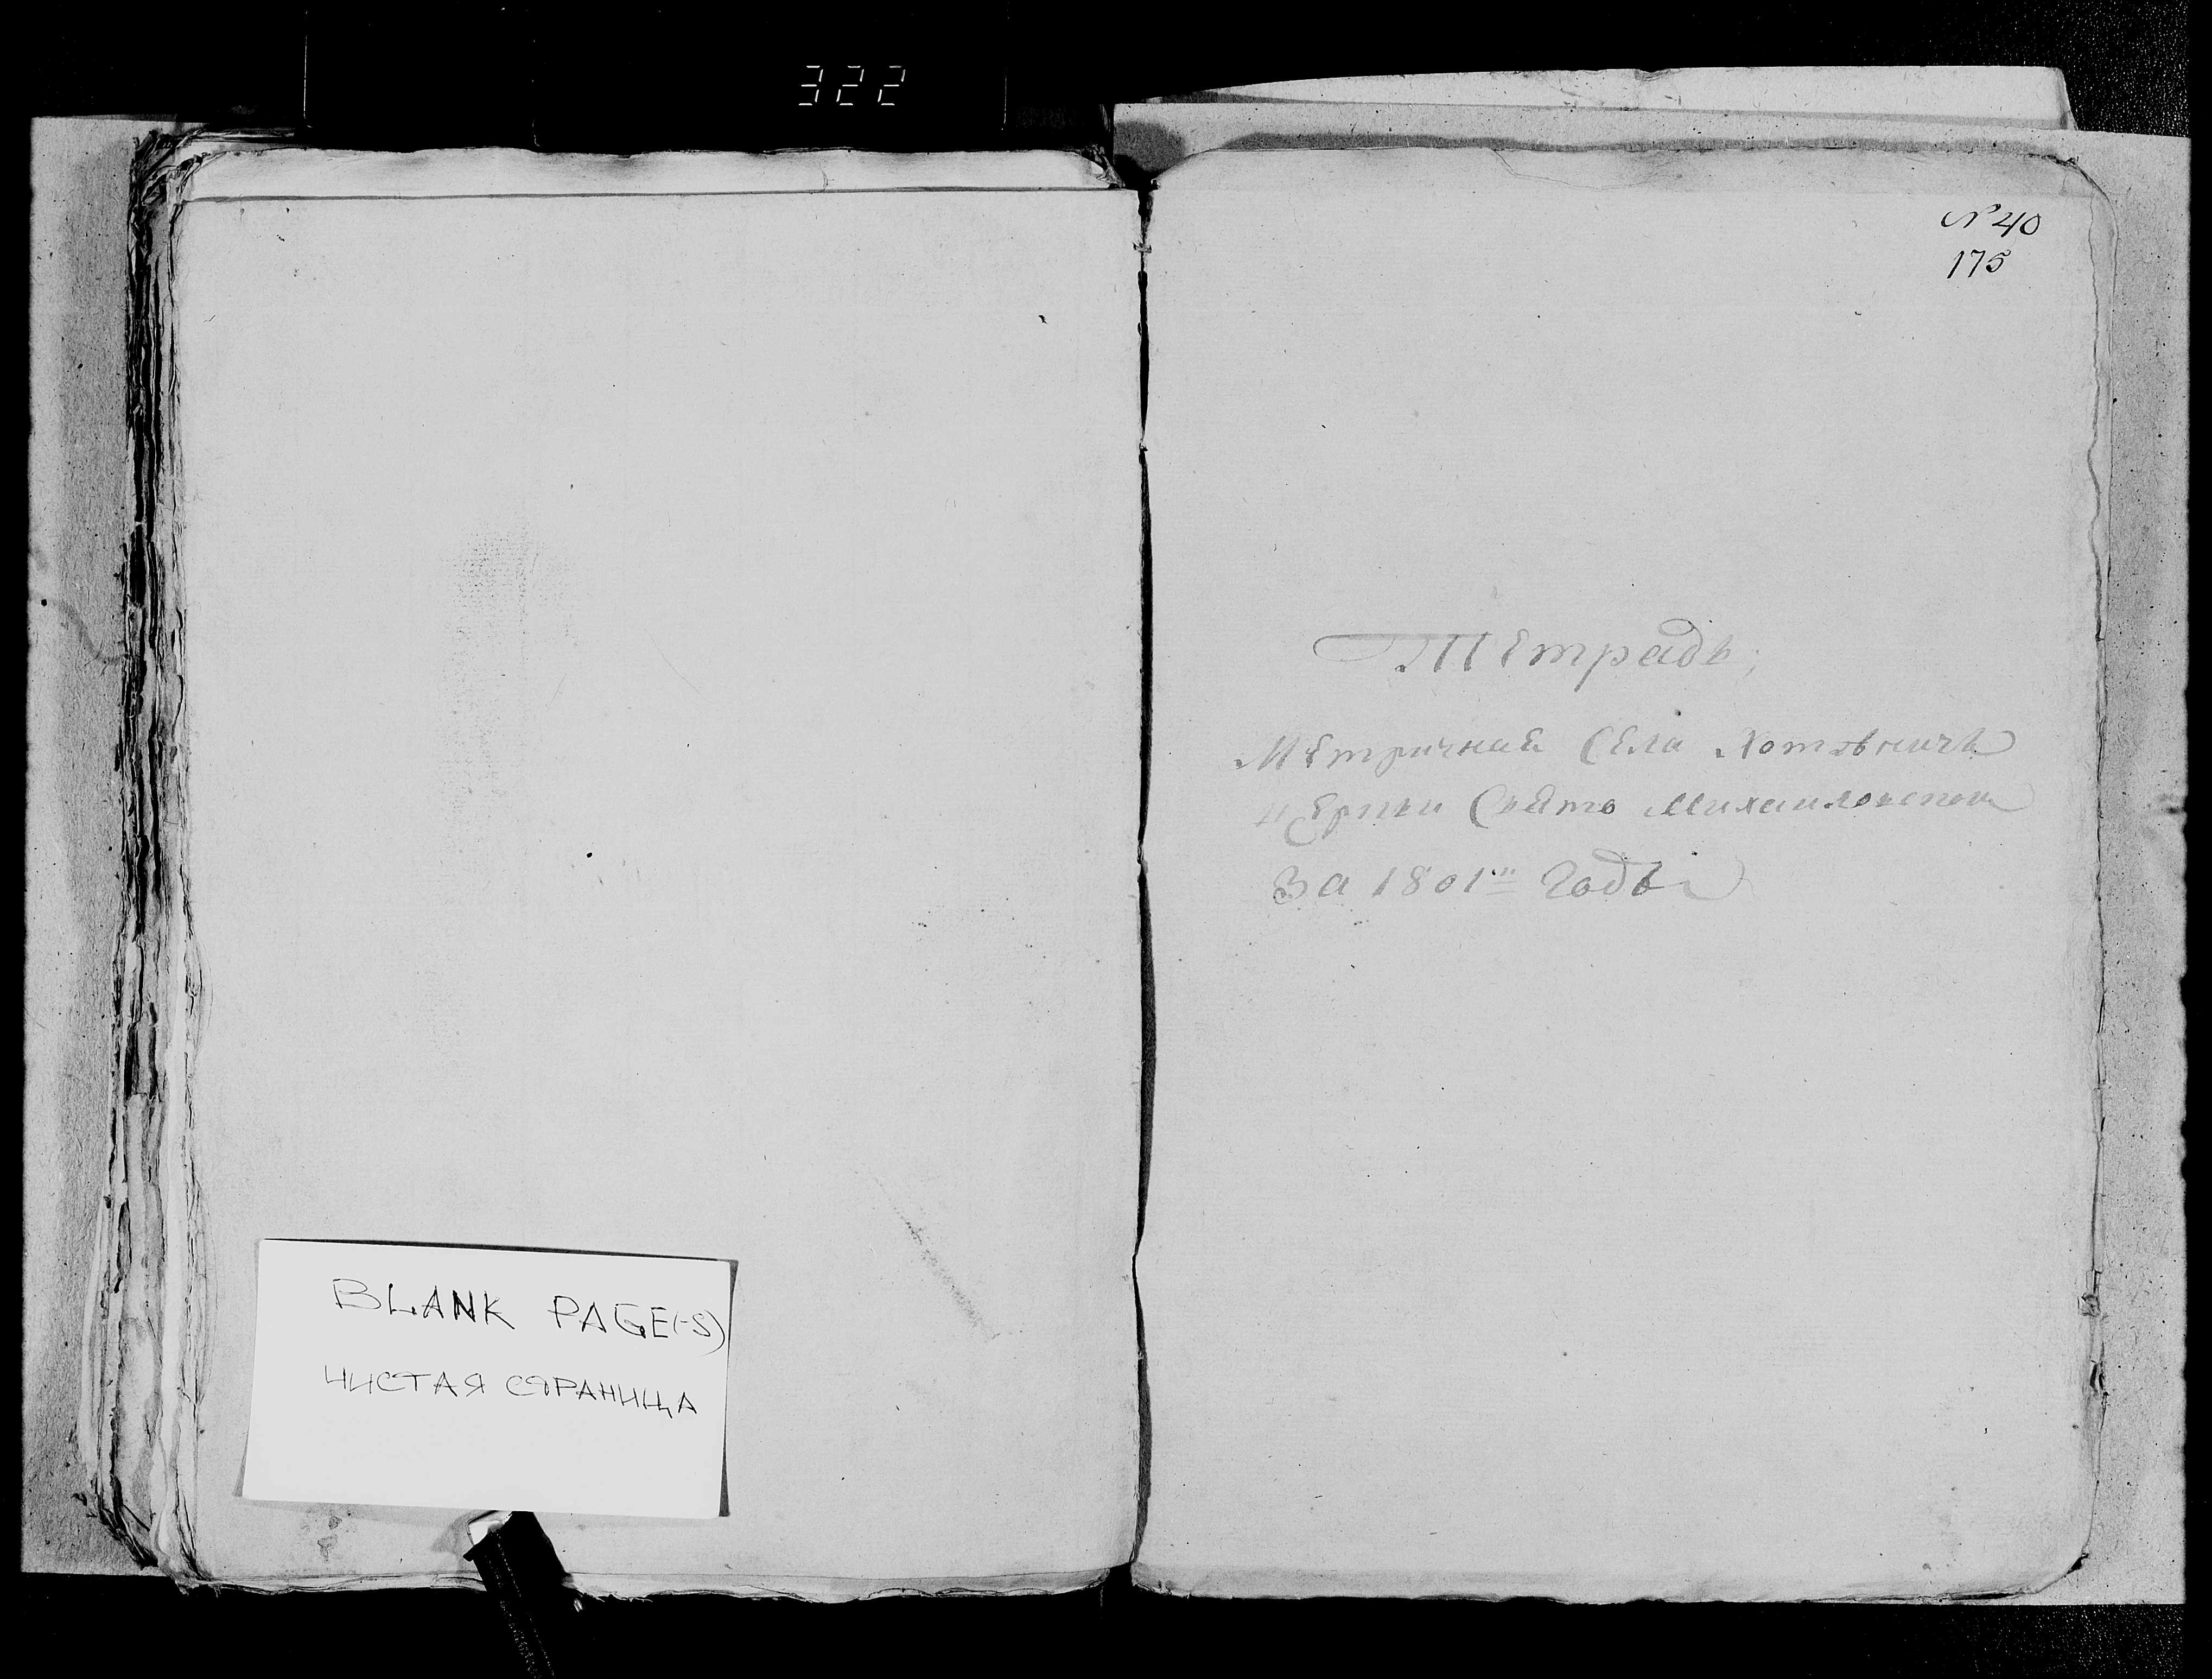 322
BLANK PAGE(-S)
ЧИСТАЯ СТРАНИЦА
N 40
175
Тетрадь,
Метричная Села Хотовичъ
церкви Свято Михаиловской
За 1801й Годъ